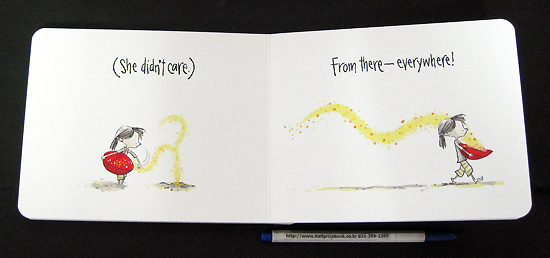 (She didn't care.)
From there—everywhere!
http://www.halfpricebook.co.kr 031-399-1289